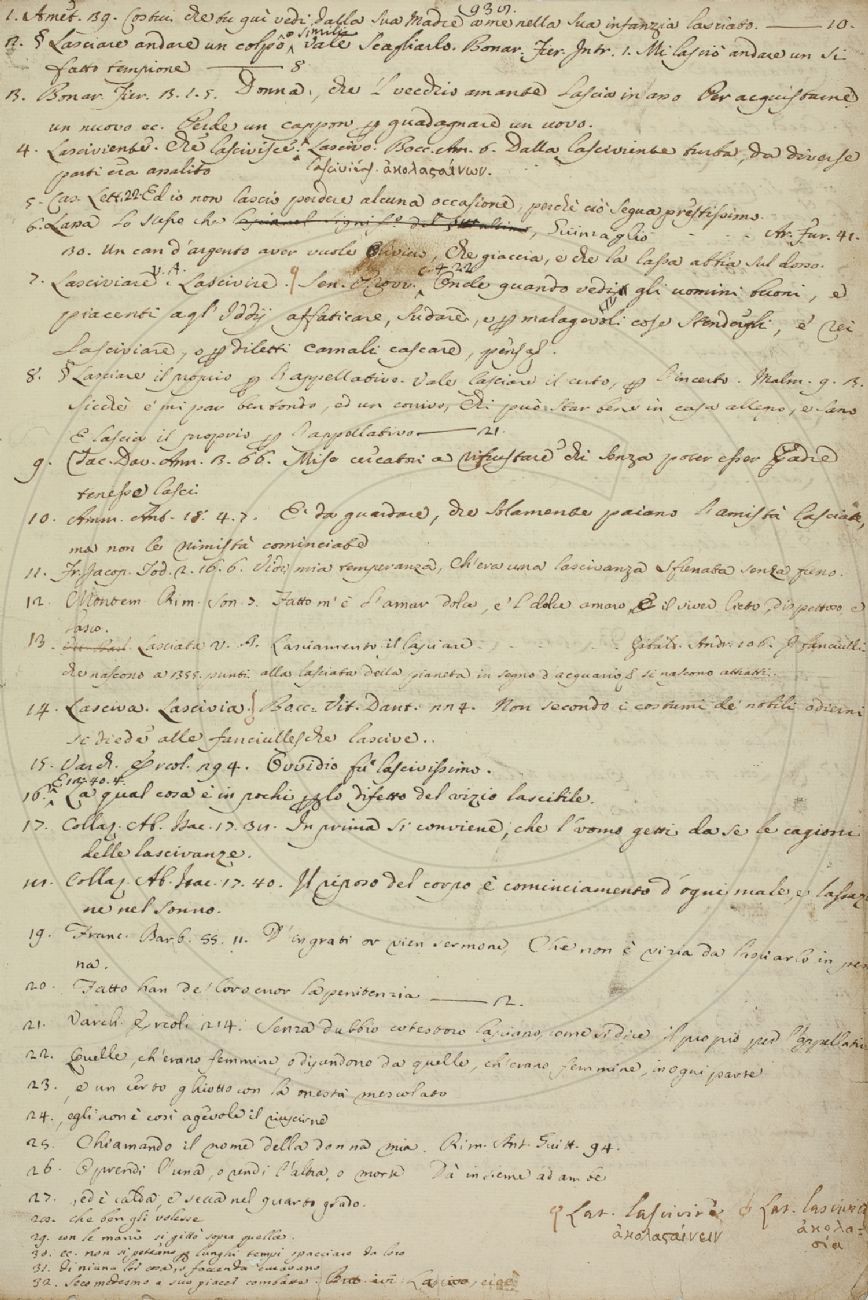 930.
1. Amet. 39. Costui, che tu qui vedi dalla sua Madre a me nella sua infanzia lasciato. —— 10.
2. § Lasciare andare un colpo, o simile vale Scagliarlo. Bonar. Fier. Intr. 1. Mi lasciò andare un sì
fatto tempione —— 8
3. Bonar. Fier. 3. 1. 5. Donna, che 'l vecchio amante lascia in asso Per acquistarne
un nuovo ec. Perde un cappon per guadagnare un uovo.
4. Lasciviente. Che lascivisce. Lascivo. Bocc. Am. 6. Dalla lasciviente turba, da diverse
parti era assalito lasciviens. ἀκολασαίνων.
5. Cas. Lett. 22. Ed io non lascio perdere alcuna occasione, perchè ciò segua prestissimo.
6. Lassa Lo stesso che, Guinzaglio - - - Ar. Fur. 41.
30. Un can d'argento aver vuole Olivier, che giaccia, e che la lassa abbia sul dosso.
7. Lasciviare. V. A. Lascivire. Sen. Provi. C. 422 Onde quando vedi gli uomini buoni, e
piacenti agl' Iddij affaticare, sudare, e per malagevoli cose stendergli, e' rei
lasciviare, e per diletti carnali cascare,
8. § Lasciare il proprio per l'appellativo. Vale lasciare il certo, per l'incerto. Malm. 9. 3.
Sicchè e' mi par ben tondo, ed un corivo, Chi può star bene in casa allegro, e sano
E lascia il proprio per l'appellativo —— 21.
9. Tac. Dav. Ann. 3. 66. Mise cercatori a rifrustare chi senza poter esser Padre
tenesse lasci.
10. Amm. Ant. 18. 4. 7. E' da guardare, che solamente paiano l'amistà lasciate,
ma non le nimistà cominciate
11. Fr. Jacop. Tod. 2. 16. 6. Vidi mia temperanza, Ch'era una lascivanza Sfrenata senza freno.
12. Montem. Rim. Son. 7. Fatto m' è l'amar dolce, e 'l dolce amaro, E il viver lieto, dispettoso e
lasso.
13. Lasciata V. A. Lasciamento, il lasciare - - - Zibald. Andr. 106. I fanciulli
che nascono a 1355. punti alla lasciata della pianeta in segno d'acquario, si nascono attratti.
14. Lasciva. Lascivia. Bocc. Vit. Dant. 224. Non secondo i costumi de' nobili odierni
si diede alle fanciullesche lascive.
15. Varch. Ercol. 294. Ovvidio fu lascivissimo.
E 12. 40. 4.
16. La qual cosa è in pochi per lo difetto del vizio lascibile.
17. Collaz. Ab. Isac. 17. 38. In prima si conviene, che l'uomo getti da se le cagioni
delle lascivanze.
18. Collaz. Ab. Isac. 17. 40. Il riposo del corpo è cominciamento d'ogni male, e lassazio
ne nel sonno.
19. Franc. Barb. 55. 11. D'ingrati or vien sermone, Che non è viria da lasciarlo in pen
na.
20. Fatto han de' loro error la penitenzia —— 12.
21. Varch. Ercol. 214. Senza dubbio cotestoro lasciano, come si dice il proprio per l'appellativo
22. Quelle, ch'erano femmine, o dijandono da quelle, ch'erano femmine, in ogni parte
23. , e un certo ghiotto con la onestà mescolato
24. , egli non è così agevole il riuscirne
25. Chiamando il nome della donna mia. Rim. Ant. Guitt. 94.
26. E prendi l'una, o rendi l'altra, o morte Dà insieme ad ambe
27. , ed è calda, e secca nel quarto grado.
28. che ben gli volesse
29. con le mani si gittò sopra quella.
30. ec. non si poteano per lunghi tempi spacciare da loro
31. di niuna lor cosa, o faccenda curavano
32. Seco medesmo a suo piacer combatte: But. ivi: Lascivo, cioè
Lat. lascivire
ἀκολασαίνειν
Lat. lascivia
ἀκολα-
σία